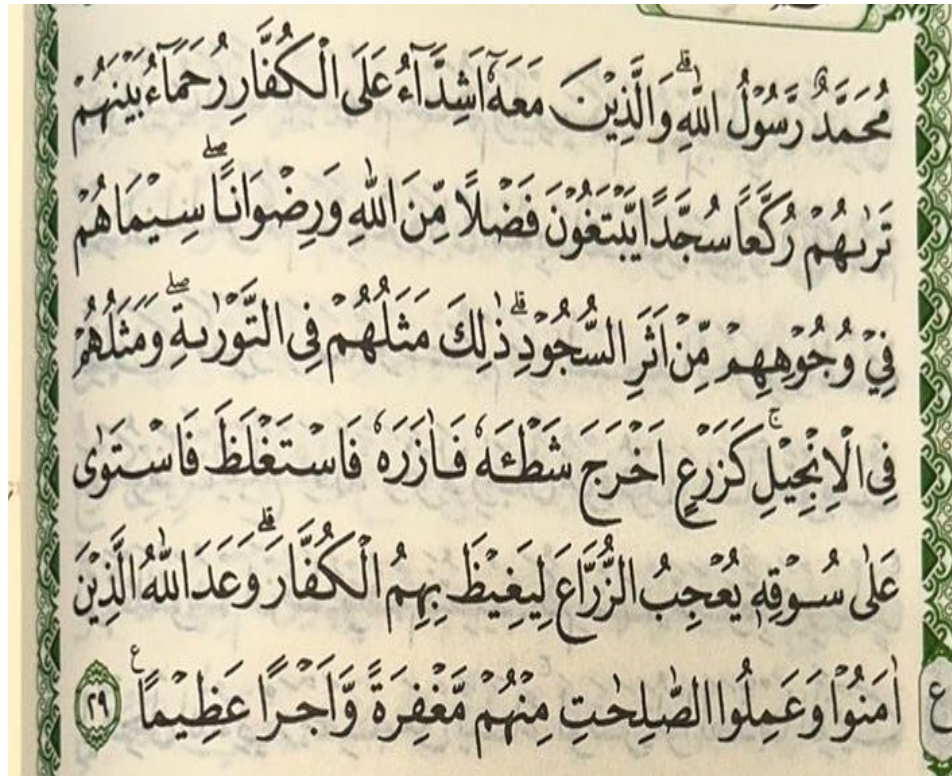 مُحَمَّدٌ رَّسُوْلُ اللّٰهِ ۗ وَالَّذِيْنَ مَعَهٗٓ اَشِدَّاۤءُ عَلَى الْكُفَّارِ رُحَمَاۤءُ بَيْنَهُمْ
تَرٰىهُمْ رُكَّعًا سُجَّدًا يَّبْتَغُوْنَ فَضْلًا مِّنَ اللّٰهِ وَرِضْوَانًا ۖ سِيْمَاهُمْ
فِيْ وُجُوْهِهِمْ مِّنْ اَثَرِ السُّجُوْدِ ۗ ذٰلِكَ مَثَلُهُمْ فِى التَّوْرٰىةِ ۖ وَمَثَلُهُمْ
فِى الْاِنْجِيْلِ ۚ كَزَرْعٍ اَخْرَجَ شَطْـَٔهٗ فَاٰزَرَهٗ فَاسْتَغْلَظَ فَاسْتَوٰى
عَلٰى سُوْقِهٖ يُعْجِبُ الزُّرَّاعَ لِيَغِيْظَ بِهِمُ الْكُفَّارَ ۗ وَعَدَ اللّٰهُ الَّذِيْنَ
اٰمَنُوْا وَعَمِلُوا الصّٰلِحٰتِ مِنْهُمْ مَّغْفِرَةً وَّاَجْرًا عَظِيْمًا ࣖ ٢٩
ع